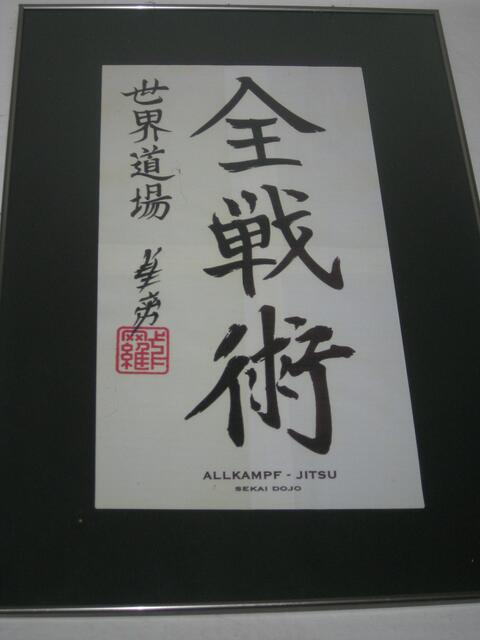 全戦術
世界道場
ALLKAMPF - JITSU
SEKAI DOJO